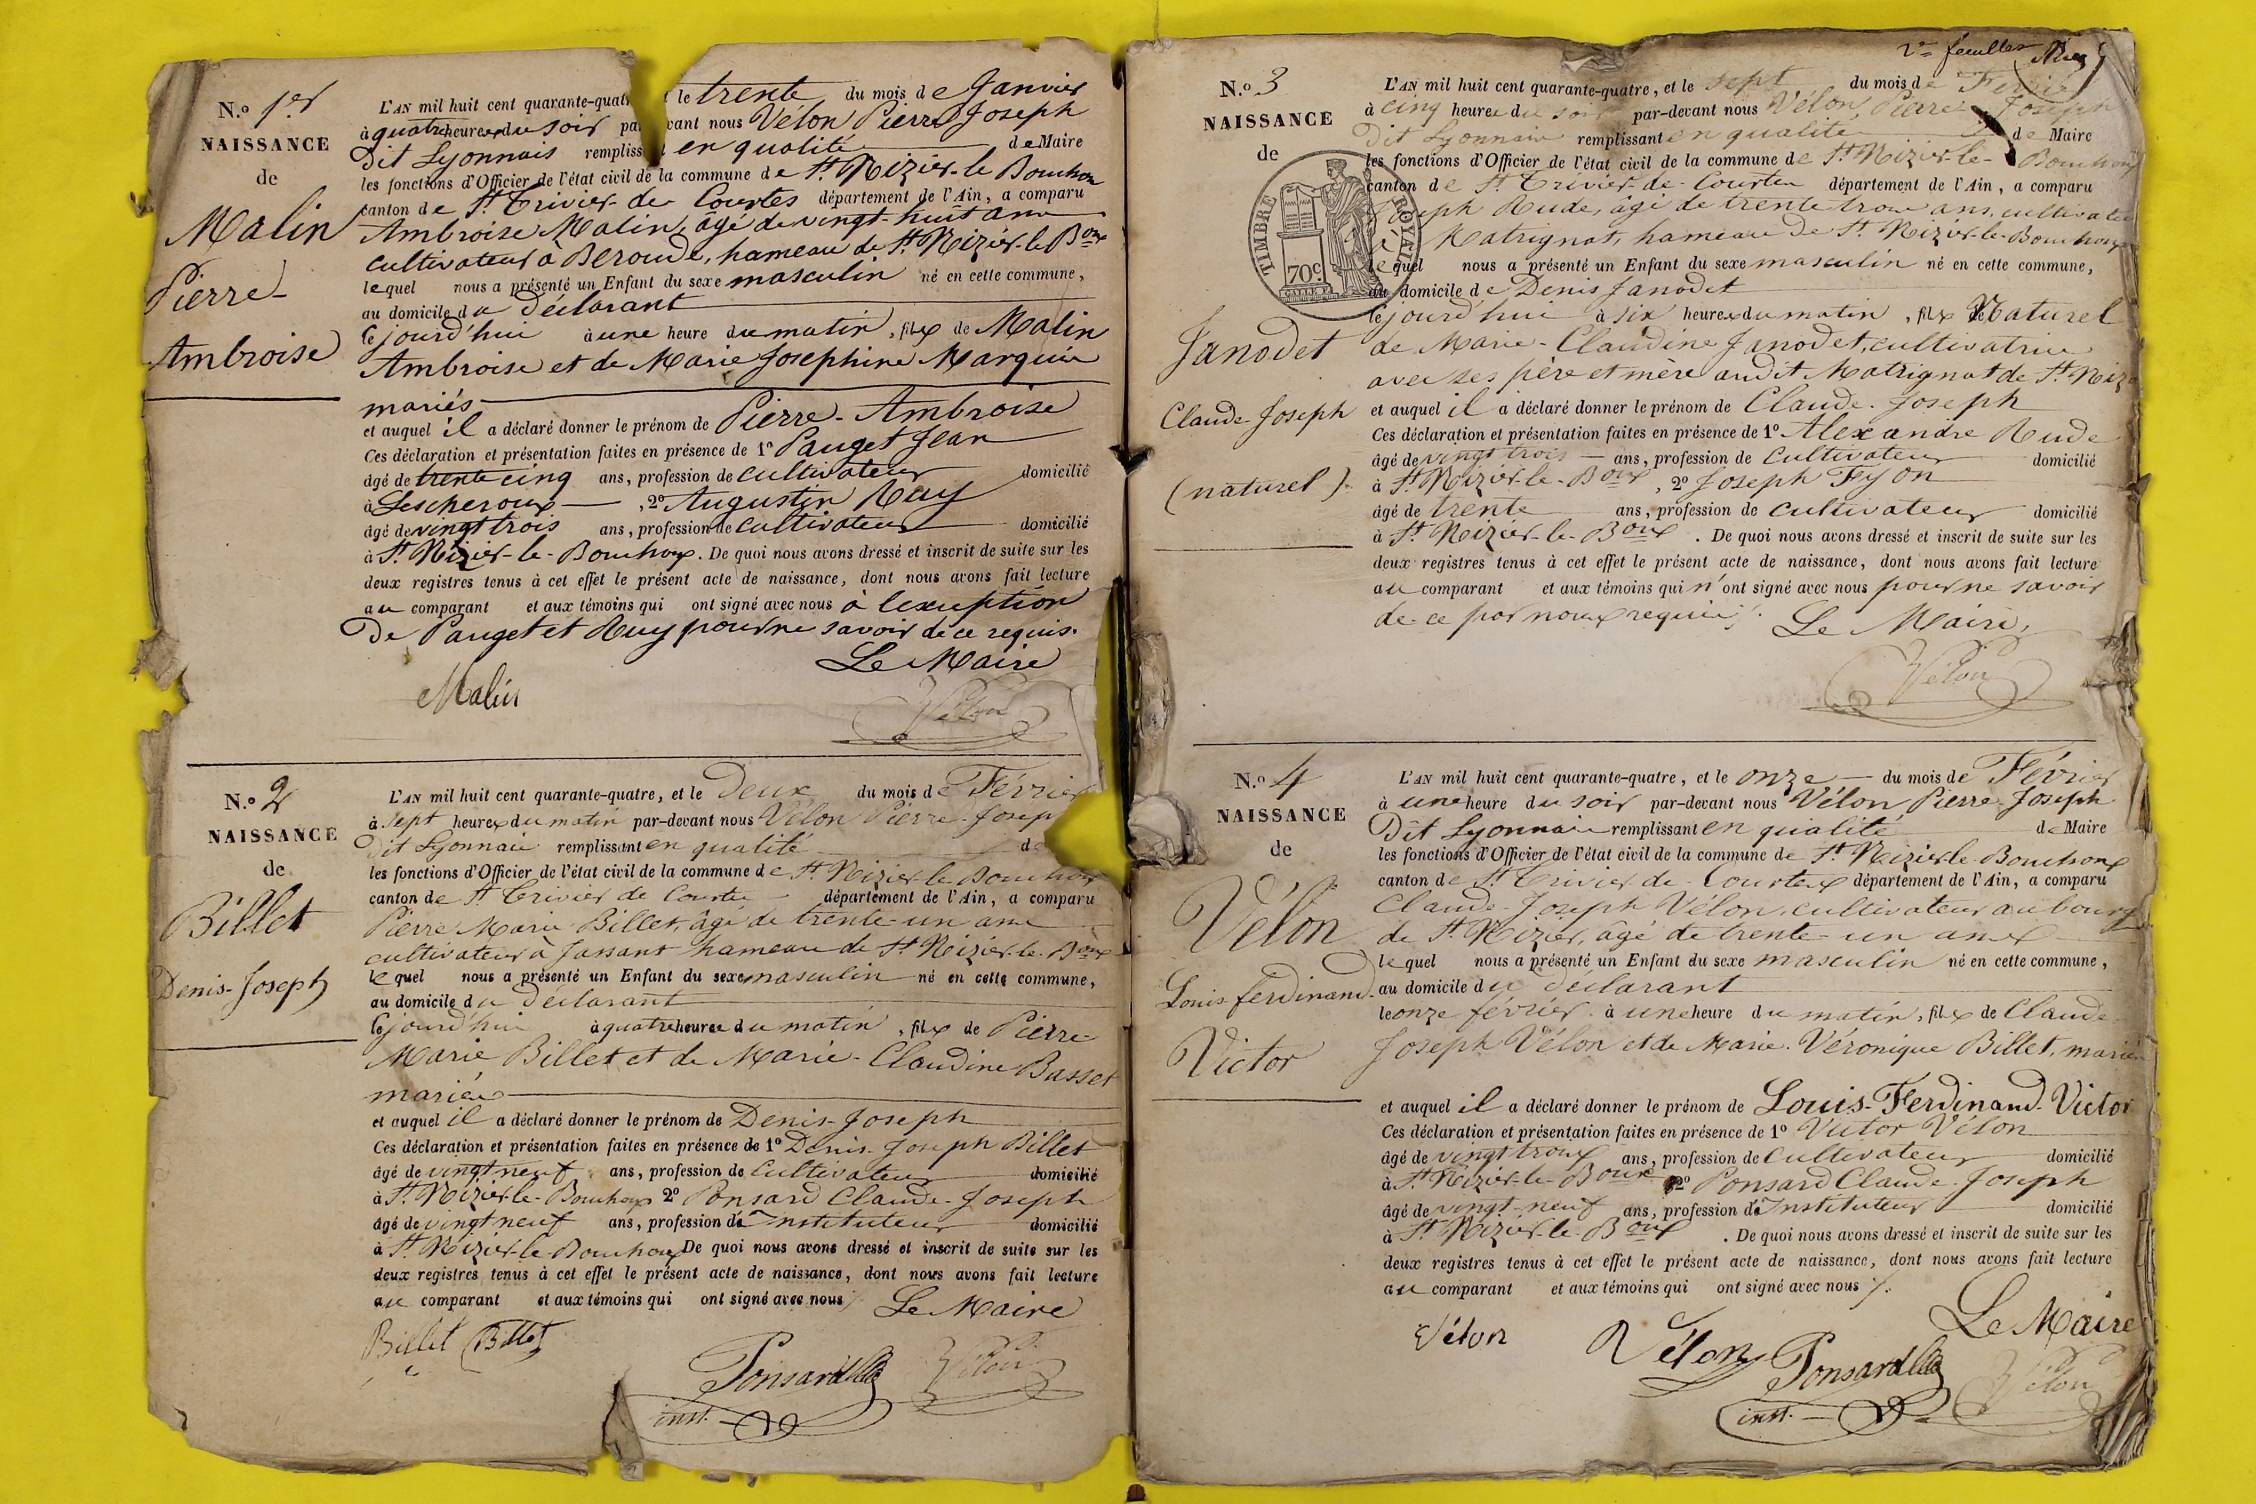 N.º 1er
NAISSANCE
de
Malin
Pierre-
Ambroise
L'AN mil huit cent quarante-quat le trente du mois de Janvier
à quatre heures du soir par-devant nous Vélon Pierre Joseph
dit Lyonnais remplissant en qualité de Maire
les fonctions d'Officier de l'état civil de la commune de St. Nizier-le Bouchoux
canton de St. Trivier de Courtes département de l'Ain, a comparu
Ambroise Malin, âgé de vingt-huit ans
cultivateur à Beroude, hameau de St. Nizier-le Boux
lequel nous a présenté un Enfant du sexe masculin né en cette commune,
au domicile du déclarant
cejourd'hui à une heure du matin, fils de Malin
Ambroise et de Marie Josephine Marquis
mariés
et auquel il a déclaré donner le prénom de Pierre-Ambroise
Ces déclaration et présentation faites en présence de 1º Pauget Jean
âgé de trente cinq ans, profession de cultivateur domicilié
à Lescheroux, 2º Augustin Ruy
âgé de vingt trois ans, profession de cultivateur domicilié
à St. Nizier-le-Bouchoux. De quoi nous avons dressé et inscrit de suite sur les
deux registres tenus à cet effet le présent acte de naissance, dont nous avons fait lecture
au comparant et aux témoins qui ont signé avec nous à l'exception
de Pauget et Ruy pour ne savoir de ce requis.
Le Maire
Malin
Vélon
N.º 2
NAISSANCE
de
Billet
Denis-Joseph
L'AN mil huit cent quarante-quatre, et le deux du mois de Février
à sept heures du matin par-devant nous Vélon Pierre-Josep
dit Lyonnais remplissant en qualité de
les fonctions d'Officier de l'état civil de la commune de St. Nizier le Bouchoux
canton de St Trivier de Courtes département de l'Ain, a comparu
Pierre Marie Billet, âgé de trente-un ans
cultivateur à Jassans hameau de St. Nizier-le-Boux
lequel nous a présenté un Enfant du sexe masculin né en cette commune,
au domicile du déclarant
cejourd'hui à quatre heures du matin, fils de Pierre
Marie Billet et de Marie-Claudine Basset
mariés
et auquel il a déclaré donner le prénom de Denis-Joseph
Ces déclaration et présentation faites en présence de 1º Denis-Joseph Billet
âgé de vingt neuf ans, profession de cultivateur domicilié
à St. Nizier-le-Bouchoux 2º Ponsard Claude-Joseph
âgé de vingt neuf ans, profession d'Instituteur domicilié
à St. Nizier-le-Bouchoux De quoi nous avons dressé et inscrit de suite sur les
deux registres tenus à cet effet le présent acte de naissance, dont nous avons fait lecture
au comparant et aux témoins qui ont signé avec nous
Le Maire
Billet Billet
Ponsard
Vélon
inst.
2e feuillet
N.º 3
NAISSANCE
de
TIMBRE ROYAL
70c.
Janodet
Claude-Joseph
(naturel)
L'AN mil huit cent quarante-quatre, et le sept du mois de Février
à cinq heures du soir par-devant nous Vélon Pierre Joseph
dit Lyonnais remplissant en qualité de Maire
les fonctions d'Officier de l'état civil de la commune de St. Nizier-le-Bouchoux
canton de St. Trivier-de-Courtes département de l'Ain, a comparu
Joseph Rude, âgé de trente trois ans, cultivateur
à Matrignat, hameau de St. Nizier-le-Bouchoux
lequel nous a présenté un Enfant du sexe masculin né en cette commune,
au domicile de Denis Janodet
cejourd'hui à six heures du matin, fils Naturel
de Marie-Claudine Janodet, cultivatrice
avec ses père et mère audit Matrignat de St. Niz
et auquel il a déclaré donner le prénom de Claude-Joseph
Ces déclaration et présentation faites en présence de 1º Alexandre Rude
âgé de vingt trois ans, profession de cultivateur domicilié
à St. Nizier-le-Boux, 2º Joseph Fyon
âgé de trente ans, profession de cultivateur domicilié
à St. Nizier-le-Boux. De quoi nous avons dressé et inscrit de suite sur les
deux registres tenus à cet effet le présent acte de naissance, dont nous avons fait lecture
au comparant et aux témoins qui n'ont signé avec nous pour ne savoir
de ce par nous requis.
Le Maire,
Vélon
N.º 4
NAISSANCE
de
Vélon
Louis ferdinand-
Victor
L'AN mil huit cent quarante-quatre, et le onze du mois de Février
à une heure du soir par-devant nous Vélon Pierre-Joseph
Dit Lyonnais remplissant en qualité de Maire
les fonctions d'Officier de l'état civil de la commune de St. Nizier le Bouchoux
canton de St. Trivier de Courtes département de l'Ain, a comparu
Claude-Joseph Vélon, cultivateur au bourg
de St. Nizier, âgé de trente-un ans
lequel nous a présenté un Enfant du sexe masculin né en cette commune,
au domicile du déclarant
le onze février à une heure du matin, fils de Claude-
Joseph Vélon et de Marie-Véronique Billet, mariés
et auquel il a déclaré donner le prénom de Louis-Ferdinand-Victor
Ces déclaration et présentation faites en présence de 1º Victor Vélon
âgé de vingt trois ans, profession de cultivateur domicilié
à St. Nizier-le-Boux 2º Ponsard Claude-Joseph
âgé de vingt-neuf ans, profession d'Instituteur domicilié
à St. Nizier-le-Boux. De quoi nous avons dressé et inscrit de suite sur les
deux registres tenus à cet effet le présent acte de naissance, dont nous avons fait lecture
au comparant et aux témoins qui ont signé avec nous
Le Maire
Vélon
Vélon
Ponsard
Vélon
inst.